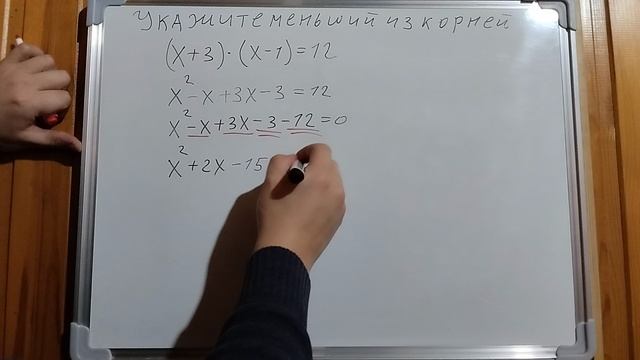 Укажите меньший из корней
(x+3)·(x-1)=12
x²-x+3x-3=12
x²-x+3x-3-12=0
x²+2x-15